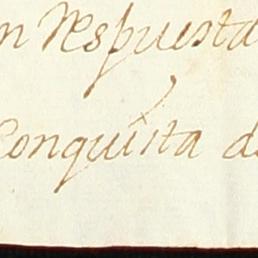 n Respuesta
Conquista d